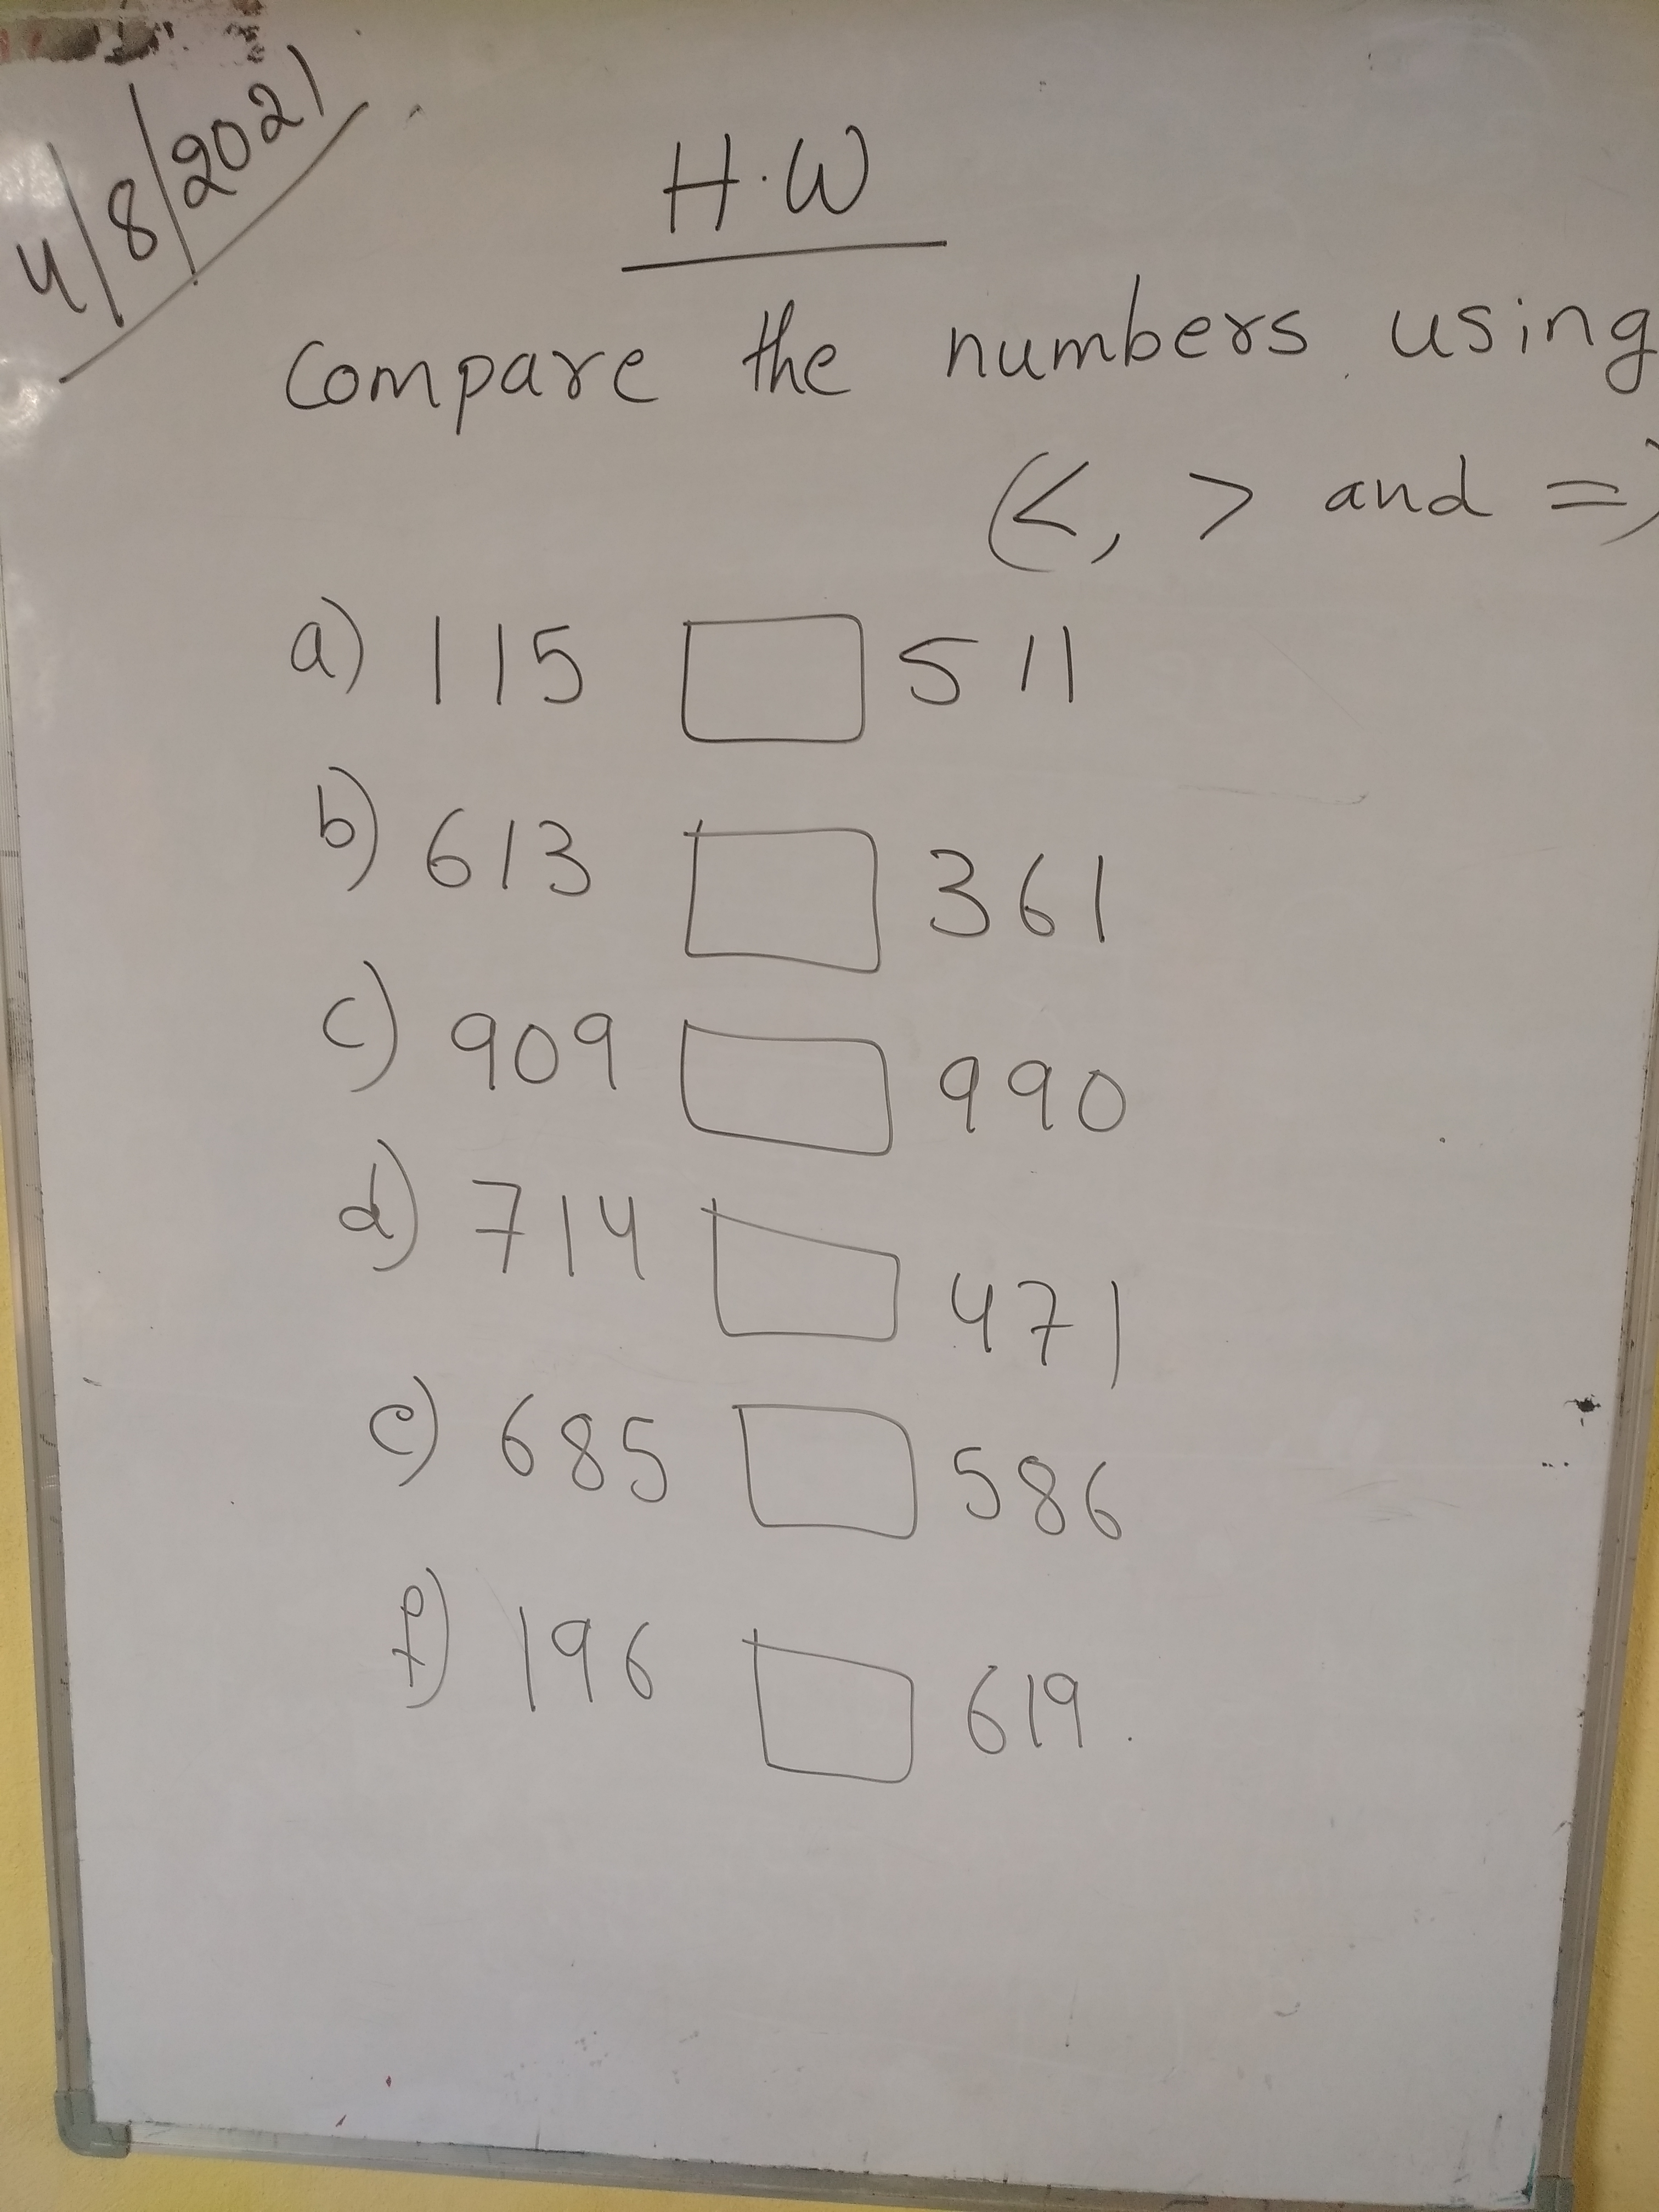 4/8/2021
H.W
Compare the numbers using
(<, > and =)
a) 115 511
b) 613 361
c) 909 990
d) 714 471
e) 685 586
f) 196 619.